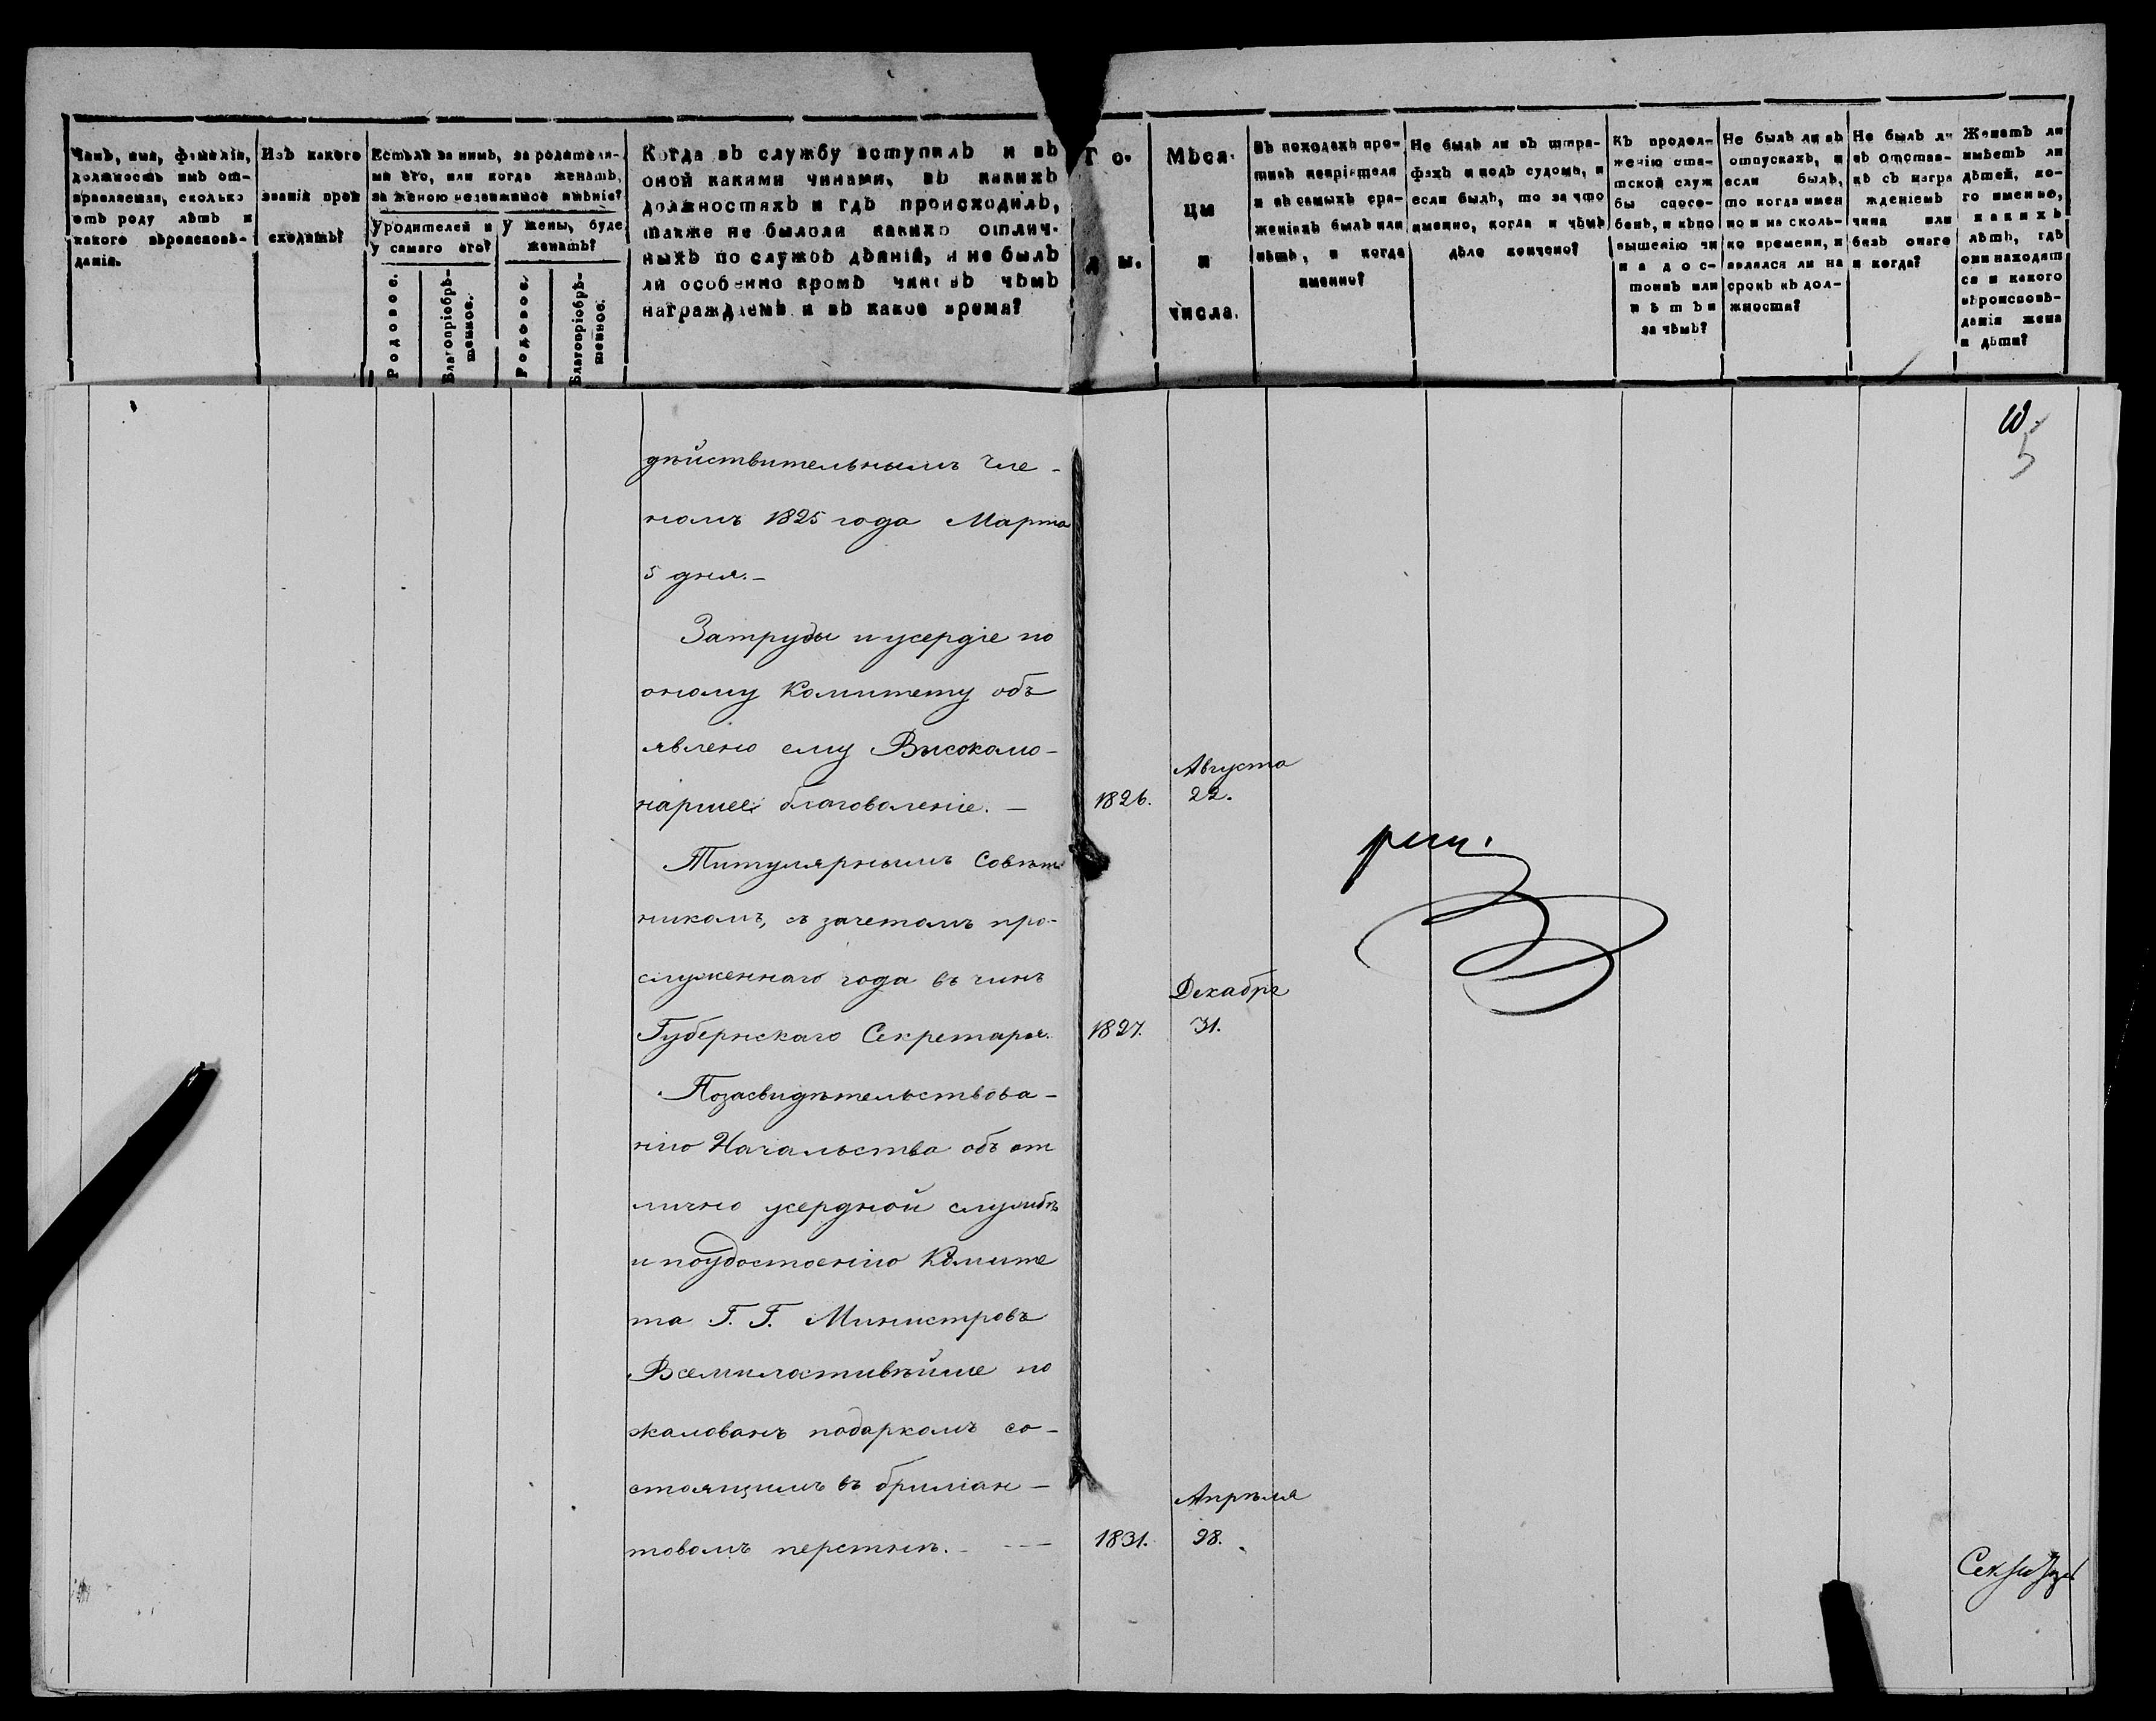 Чинъ, имя, фамилія,
должность имъ от-
правляемая, сколько
отъ роду лѣтъ и
какого вѣроисповѣ-
данія.
Изъ какого
званія прои
сходитъ?
Есть ли за нимъ, за родителя-
ми его, или когда женатъ,
за женою недвижимое имѣніе?
У родителей и
у самаго его?
У жены, буде
женатъ?
Родовое.
Благопріобрѣ-
тенное.
Родовое.
Благопріобрѣ-
тенное.
Когда въ службу вступилъ и въ
оной какими чинами, въ какихъ
должностяхъ и гдѣ происходилъ,
также не было ли какихъ отлич-
ныхъ по службѣ дѣяній, и не былъ
ли особенно кромѣ чиновъ чѣмъ
награждаемъ и въ какое время?
Г о-
д ы.
Мѣся-
цы
и
числа.
Въ походахъ про-
тивъ непріятеля
и въ самыхъ сра-
женіяхъ былъ или
нѣтъ, и когда
именно?
Не былъ ли въ штра-
фахъ и подъ судомъ, и
если былъ, то за что
именно, когда и чѣмъ
дѣло кончено?
Къ продол-
женію ста-
тской служ
бы спосо-
бенъ, и къ по
вышенію чи
на дос-
тоинъ или
нѣтъ и
за чѣмъ?
Не былъ ли въ
отпускахъ, и
если былъ,
то когда имен
но и на сколь-
ко времени, и
являлся ли на
срокъ къ дол-
жности?
Не былъ ли
въ отстав-
кѣ съ награ
жденіемъ
чина или
безъ онаго
и когда?
Женатъ ли
имѣетъ ли
дѣтей, ко-
го именно,
какихъ
лѣтъ, гдѣ
они находят
ся и какого
вѣроисповѣ-
данія жена
и дѣти?
5
дѣйствительнымъ чле-
номъ 1825 года Марта
5 дня.-
За труды и усердіе по
оному Комитету объ
явлено ему Высокомо-
наршее благоволеніе. -
1826. Августа 22.
Титулярнымъ Совѣт
никомъ, съ зачетомъ про-
служеннаго года въ чинѣ
Губернскаго Секретаря.
1827. Декабря 31.
По засвидѣтельствова-
нію Начальства объ от
лично усердной службѣ
и по удостоенію Комите
та Г. Г. Министровъ
Всемилостивѣйше по
жалованъ подаркомъ со-
стоящимъ въ бриліан-
товомъ перстнѣ. - ---
1831. Апрѣля 28.